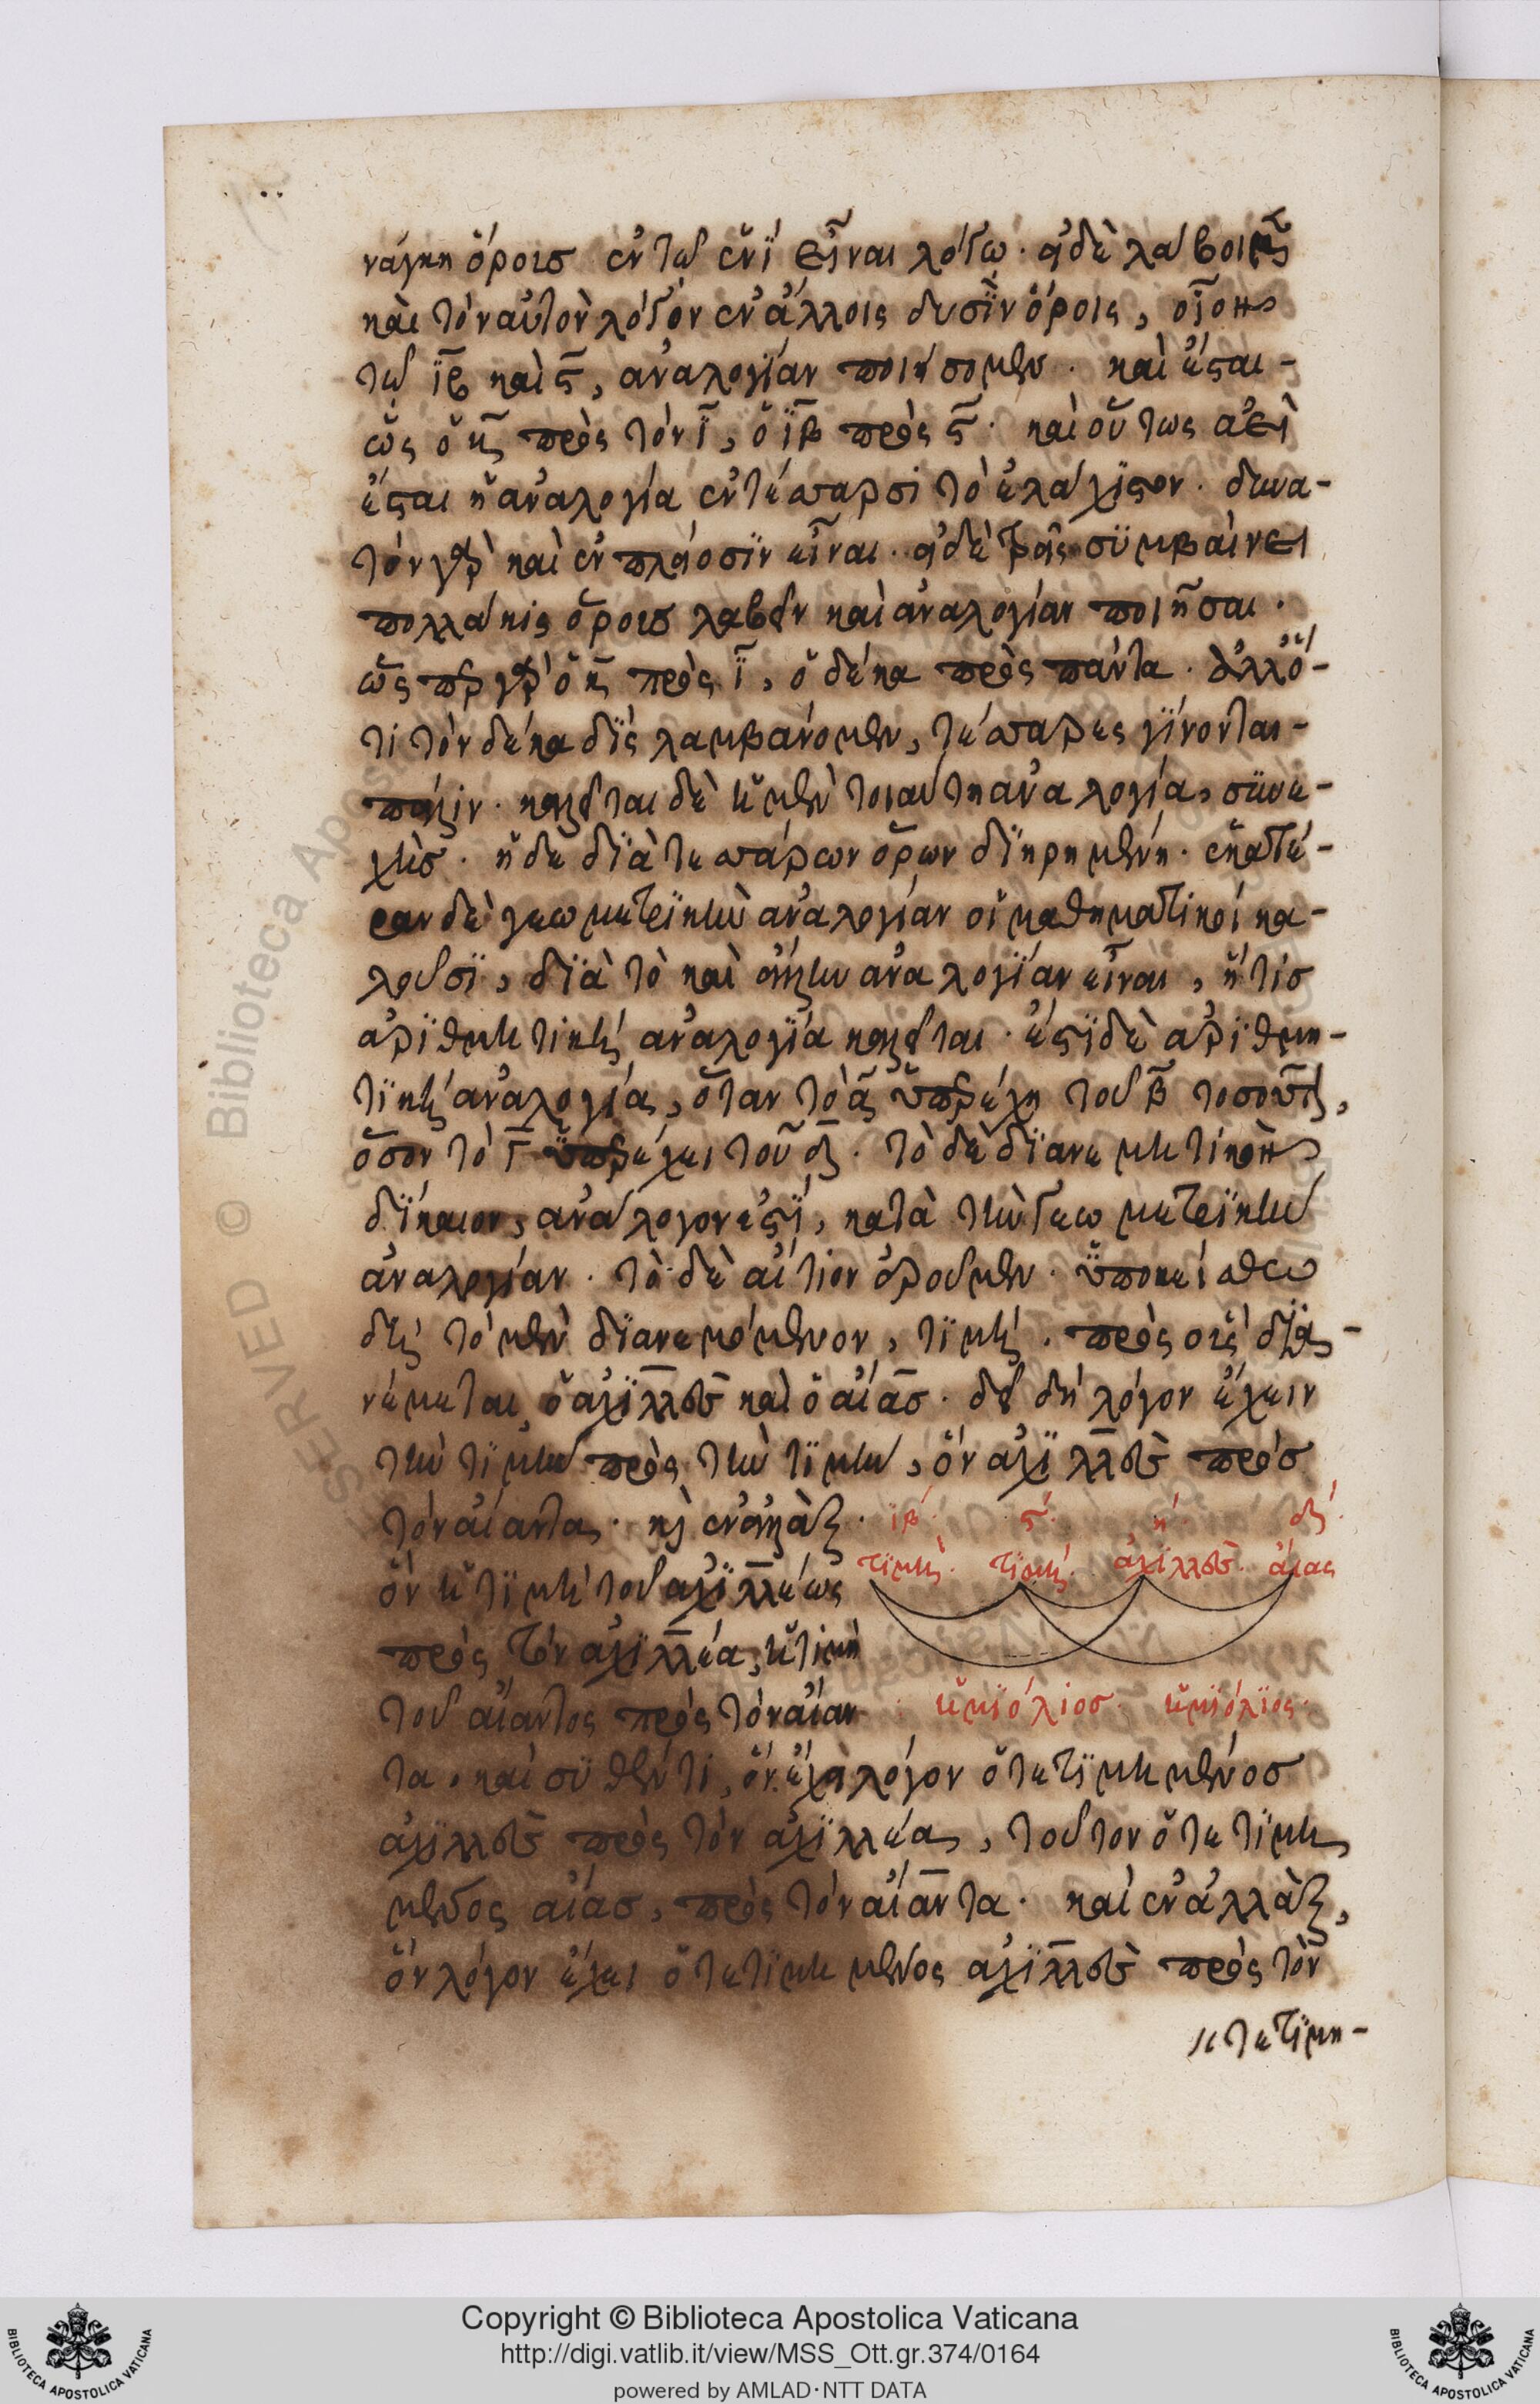 νάγκη ὅροις ἐν τῷ ἑνὶ εἶναι λόγῳ. εἰ δὲ λάβοιμεν
καὶ τὸν αὐτὸν λόγον ἐν ἄλλοις δυσὶν ὅροις, οἷον
τῷ ιβ καὶ ϛ, ἀναλογίαν ποιήσομεν. καὶ ἔσται
ὡς ὁ κ πρὸς τὸν ι, ὁ ιβ πρὸς ϛ. καὶ οὕτως ἀεὶ
ἔσται ἡ ἀναλογία ἐν τέσσαρσι τὸ ἐλάχιστον. δυνα-
τὸν γὰρ καὶ ἐν πλείοσιν εἶναι. εἰ δὲ τρεῖς συμβαίνει
πολλάκις ὅρους λαβεῖν καὶ ἀναλογίαν ποιῆσαι.
ὥσπερ γὰρ ὁ κ πρὸς ι, ὁ δέκα πρὸς πέντε. ἀλλ' ὅ-
τι τὸν δέκα δὶς λαμβάνομεν, τέσσαρες γίνονται
πάλιν. καλεῖται δὲ ἡ μὲν τοιαύτη ἀναλογία, συνε-
χής. ἡ δὲ διὰ τεσσάρων ὅρων διῃρημένη. ἑκατέ-
ραν δὲ γεωμετρικὴν ἀναλογίαν οἱ μαθηματικοὶ κα-
λοῦσι, διὰ τὸ καὶ ἄλλην ἀναλογίαν εἶναι, ἥτις
ἀριθμητικὴ ἀναλογία καλεῖται. ἔστι δὲ ἀριθμη-
τικὴ ἀναλογία, ὅταν τὸ α ὑπερέχῃ τοῦ β τοσοῦτον,
ὅσον τὸ γ ὑπερέχει τοῦ δ. τὸ δὲ διανεμητικὸν
δίκαιον, ἀνάλογον ἐστὶ, κατὰ τὴν γεωμετρικὴν
ἀναλογίαν. τὸ δὲ αἴτιον ἐροῦμεν. ὑποκείσθω
δὴ τὸ μὲν διανεμόμενον, τιμή. πρὸς οὓς δια-
νέμεται, ὁ ἀχιλλεὺς καὶ ὁ αἴας. δεῖ δὴ λόγον ἔχειν
τὴν τιμὴν πρὸς τὴν τιμὴν, ὃν ἀχιλλεὺς πρὸς
τὸν αἴαντα. καὶ ἐναλλὰξ.
ὃν ἡ τιμὴ τοῦ ἀχιλλέως
πρὸς τὸν ἀχιλλέα, ἡ τιμὴ
τοῦ αἴαντος πρὸς τὸν αἴαν
τα. καὶ συνθέντι, ὃν ἔχει λόγον ὁ τετιμημένος
ἀχιλλεὺς πρὸς τὸν ἀχιλλέα, τοῦτον ὁ τετιμη
μένος αἴας, πρὸς τὸν αἴαντα. καὶ ἐναλλὰξ,
ὃν λόγον ἔχει ὁ τετιμημένος ἀχιλλεὺς πρὸς τὸν
τετιμη-
ιβ. ϛ. η. δ.
τιμή. τιμή. ἀχιλλεύς. αἴας
ἡμιόλιος. ἡμιόλιος.
SERVED © Biblioteca Apos
Copyright © Biblioteca Apostolica Vaticana
http://digi.vatlib.it/view/MSS_Ott.gr.374/0164
powered by AMLAD·NTT DATA
BIBLIOTECA APOSTOLICA VATICANA
BIBLIOTECA APOSTOLICA VATICANA